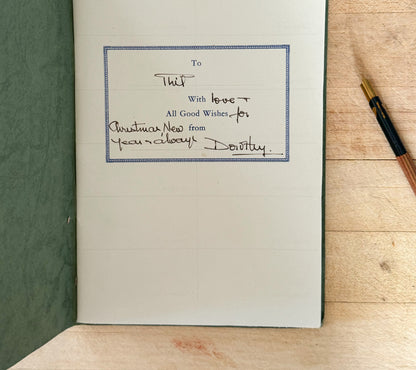 To
Phil
With love +
All Good Wishes for
Christmas, New from
Year & always Dorothy.